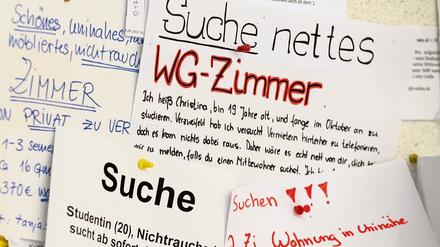 Schönes, uninahes
möbliertes, nichtrauch
ZIMMER
ON PRIVAT ZU VER
1-3 semes
ca 16 qm
370€ wa
Suche nettes
WG-Zimmer
Ich heiß Christina, bin 19 Jahre alt, und fange im Oktober an zu
studieren. Verzweifelt hab ich versucht Vermietern hinterher zu telefonieren,
doch es kam nichts dabei raus. Daher wäre es echt nett von dir, dich
mir zu melden, falls du einen Mitbewohner suchst.
Suche
Studentin (20), Nichtrauche
sucht ab sofort
Suchen !!!
2 Zi Wohnung in Uninähe